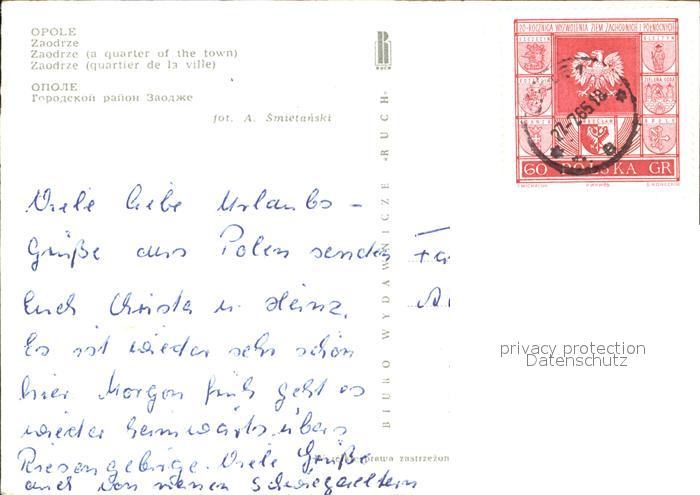 OPOLE
Zaodrze
Zaodrze (a quarter of the town)
Zaodrze (quartier de la ville)
ОПОЛЕ
Городской район Заодже
fot. A. Śmietański
RUCH
BIURO WYDAWNICZE «RUCH»
20-ROCZNICA WYZWOLENIA ZIEM ZACHODNICH I PÓŁNOCNYCH
SZCZECIN
OLSZTYN
ZIELONA GÓRA
WROCŁAW
OPOLE
27.7.65.18
B
60 POLSKA GR
Viele liebe Urlaubs-
Grüße aus Polen senden
Euch Christa u. Heinz.
Es ist wieder sehr schön
hier. Morgen früh geht es
wieder heimwärts übers
Riesengebirge. Viele Grüße
auch von meinen Schwiegereltern
prawa zastrzeżon
privacy protection
Datenschutz